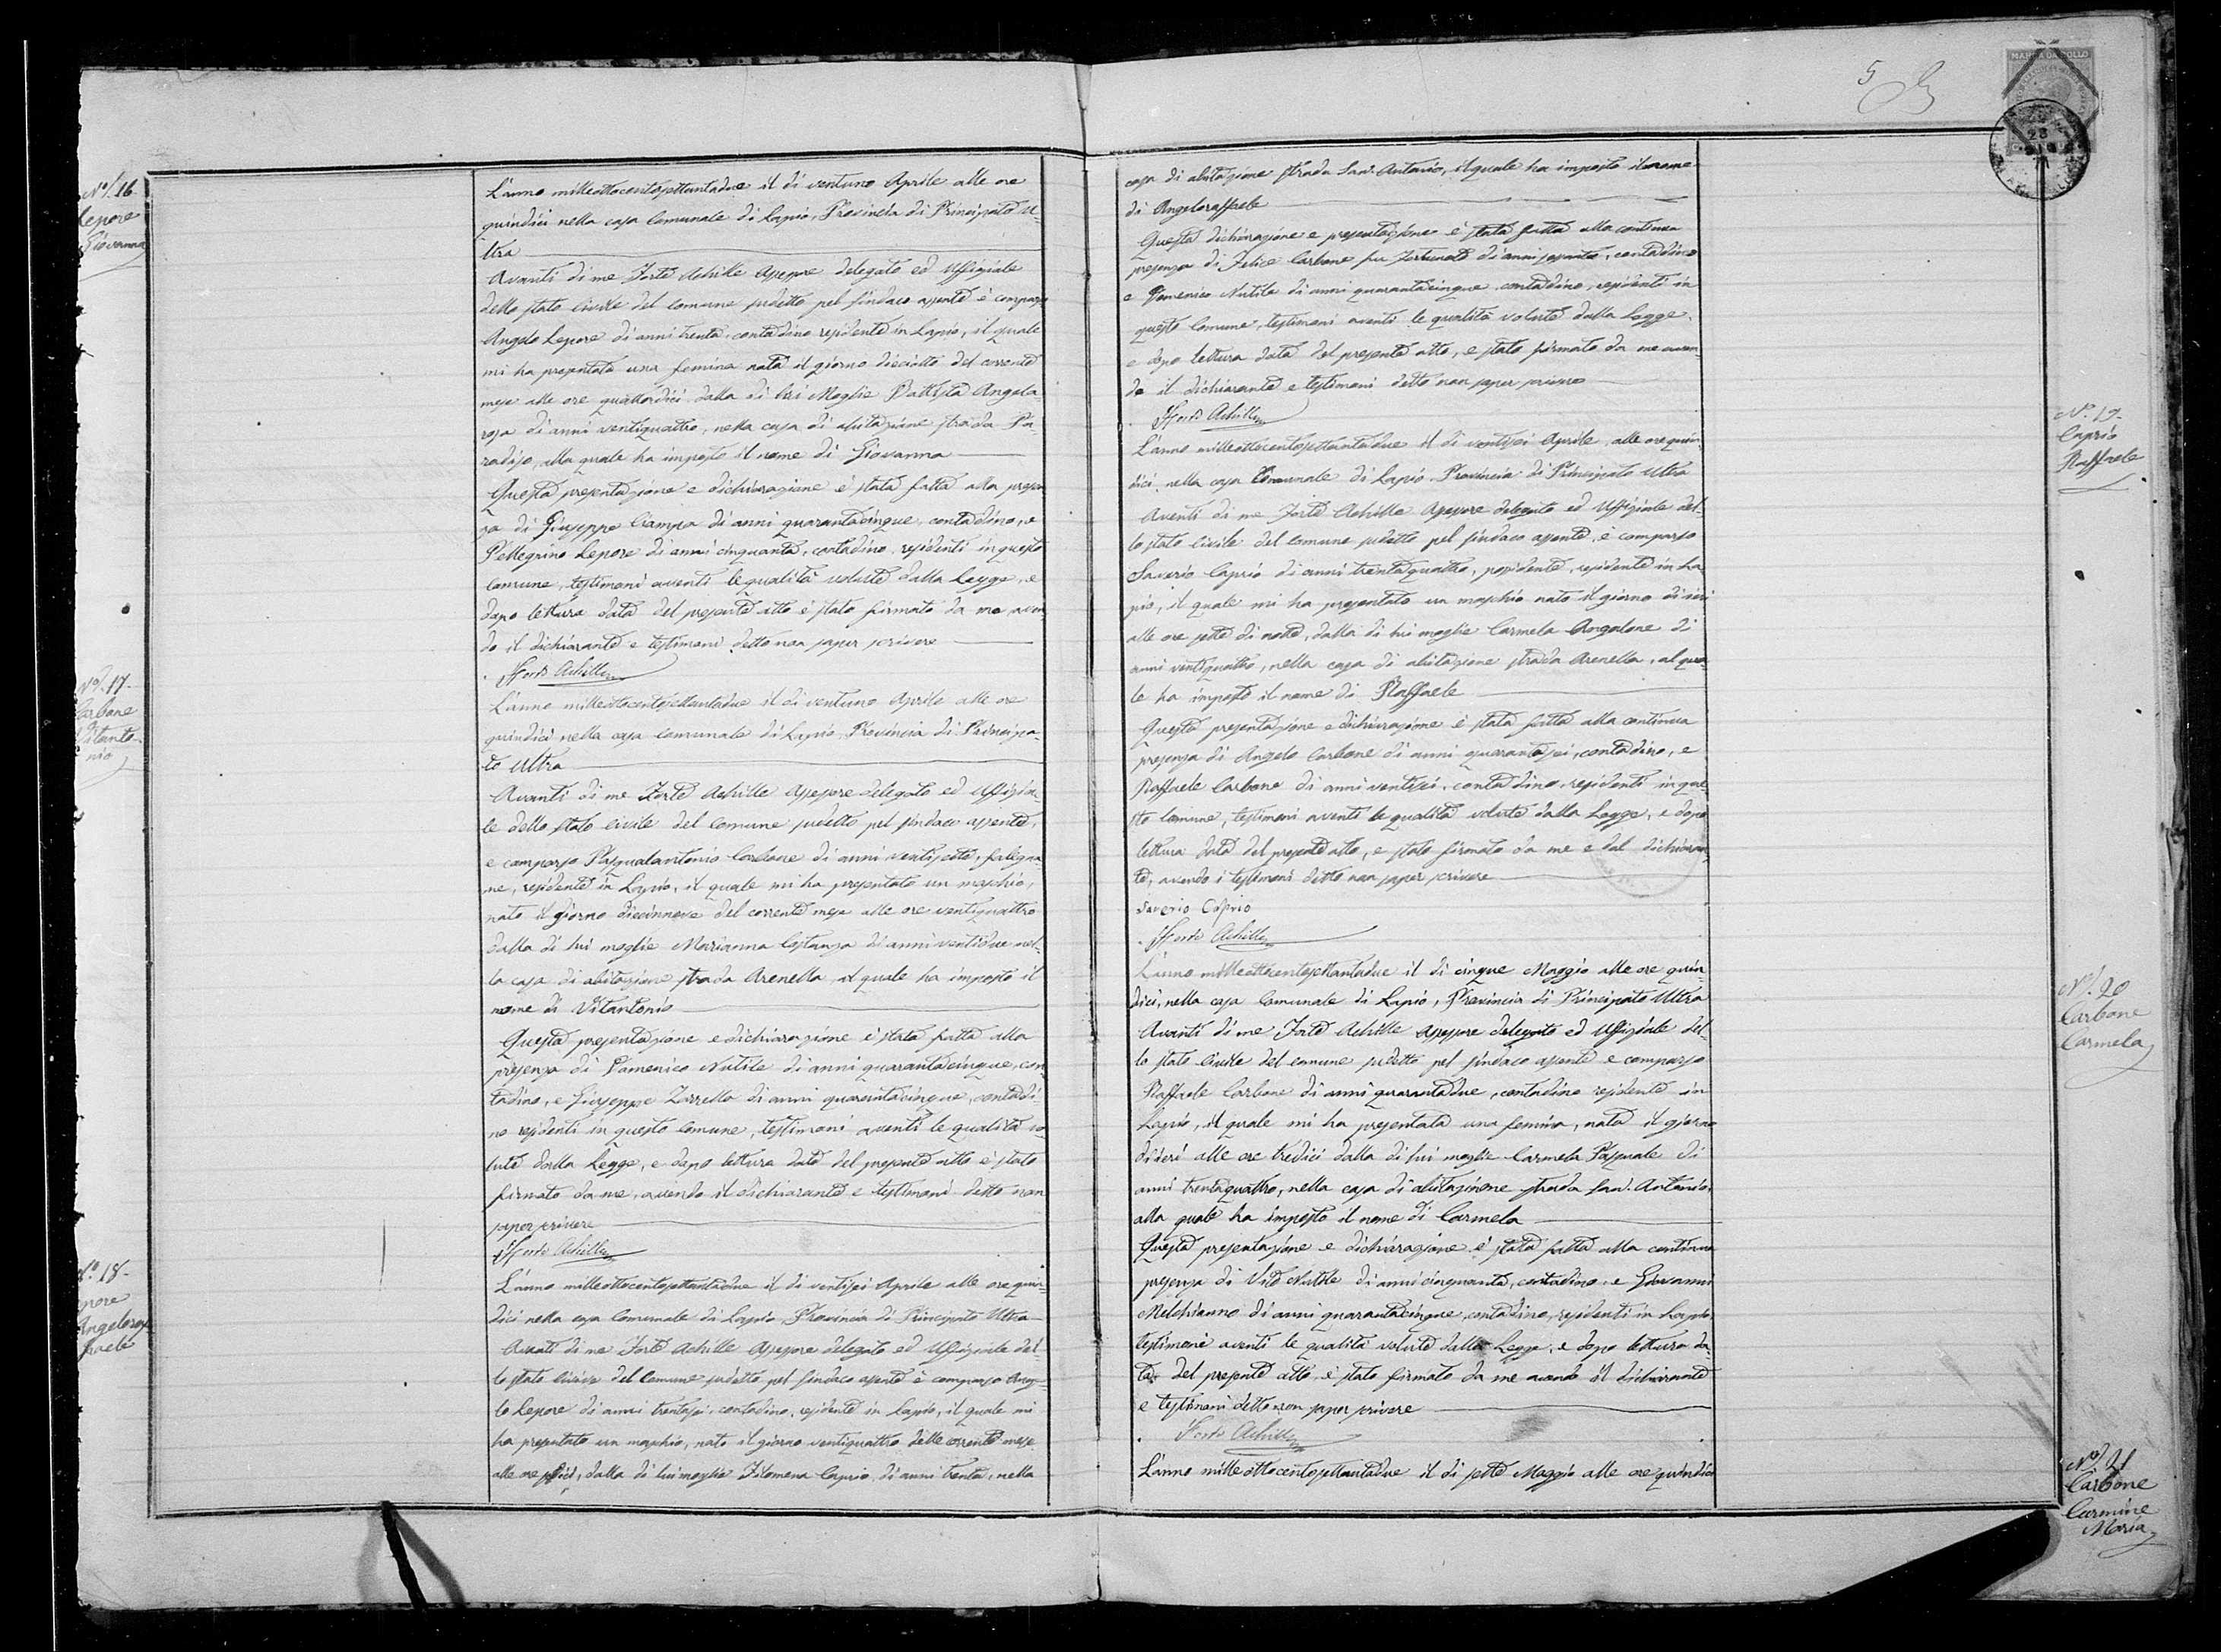 No. 16.
Lepore
Giovanna
L'anno milleottocentosettantadue il di ventuno Aprile alle ore
quindici nella casa Comunale di Lapio, Provincia di Principato U-
ltra
Avanti di me Forte Achille Assessore delegato ed Uffiziale
dello stato Civile del Comune sudetto pel sindaco assente è comparso
Angelo Lepore di anni trenta, contadino residente in Lapio, il quale
mi ha presentata una femina nata il giorno dieciotto del corrente
mese alle ore quattordici dalla di lui Moglie Battista Angela-
rosa di anni ventiquattro, nella casa di abitazione strada Pa-
radiso, alla quale ha imposto il nome di Giovanna
Questa presentazione e dichiarazione è stata fatta alla presen
za di Giuseppe Ciampa di anni quarantacinque, contadino, e
Pellegrino Lepore di anni cinquanta, contadino, residenti in questo
Comune, testimoni aventi le qualità volute dalla Legge, e
dopo lettura data del presente atto è stato firmato da me, aven-
do il dichiarante e testimoni detto non saper scrivere
Forte Achille
No. 17.
Carbone
Vitanto-
nio
L'anno milleottocentosettantadue il di ventuno Aprile alle ore
quindici nella casa Comunale di Lapio, Provincia di Principa-
to Ultra
Avanti di me Forte Achille Assessore delegato ed Uffizia-
le dello stato civile del Comune sudetto pel sindaco assente,
e comparso Pasqualantonio Carbone di anni ventisette, falegna-
me, residente in Lapio, il quale mi ha presentato un maschio,
nato il giorno diecinnove del corrente mese alle ore ventiquattro
dalla di lui moglie Marianna Costanza di anni ventidue nel-
la casa di abitazione strada Arenella, al quale ha imposto il
nome di Vitantonio
Questa presentazione e dichiarazione è stata fatta alla
presenza di Domenico Nutile di anni quarantacinque, con-
tadino, e Giuseppe Zarrella di anni quarantacinque, contadi
no residenti in questo Comune, testimoni aventi le qualità vo-
lute dalla Legge, e dopo lettura data del presente atto è stato
firmato da me, avendo il dichiarante e testimoni detto non
saper scrivere
Forte Achille
No. 18.
Lepore
Angeloraf-
faele
L'anno milleottocentosettantadue il di ventisei Aprile alle ore quin-
dici nella casa Comunale di Lapio, Provincia di Principato Ultra
Avanti di me Forte Achille Assessore delegato ed Uffiziale del-
lo stato Civile del Comune sudetto pel sindaco assente è comparso Ange-
lo Lepore di anni trentasei, contadino, residente in Lapio, il quale mi
ha presentato un maschio, nato il giorno ventiquattro delle corrente mese
alle ore, dalla di lui moglie Filomena Caprio, di anni trenta, nella
5
MARCA DA BOLLO
casa di abitazione strada San Antonio, il quale ha imposto il nome
di Angeloraffaele
Questa dichiarazione e presentazione è stata fatta alla continua
presenza di Felice Carbone fu Fortunato di anni sessanta, contadino
e Domenico Nutile di anni quarantacinque contadino, residenti in
questo Comune, testimoni aventi le qualità volute dalla Legge,
e dopo lettura data del presente atto, e stato firmato da me aven-
do il dichiarante e testimoni detto non saper scrivere
Forte Achille
No. 19.
Caprio
Raffaele
L'anno milleottocentosettantadue il di ventisei Aprile, alle ore quin-
dici, nella casa Comunale di Lapio Provincia di Principato Ultra
Aventi di me Forte Achille Assessore delegato ed Uffiziale del-
lo stato Civile del Comune sudetto pel sindaco assente, è comparso
Saverio Caprio di anni trentaquattro, possidente, residente in La
pio, il quale mi ha presentato un maschio nato il giorno di ieri
alle ore sette di notte, dalla di lui moglie Carmela Angelone di
anni ventiquattro, nella casa di abitazione strada Arenella, al qua-
le ha imposto il nome di Raffaele
Questa presentazione e dichiarazione è stata fatta alla continua
presenza di Angelo Carbone di anni quarantasei, contadino, e
Raffaele Carbone di anni ventisei, contadino, residenti in que-
sto Comune, testimoni aventi le qualità volute dalla Legge, e dopo
lettura data del presente atto, e stato firmato da me e dal dichiaran-
te, avendo i testimoni detto non saper scrivere
Saverio Caprio
Forte Achille
No. 20
Carbone
Carmela
L'anno milleottocentosettantadue il di cinque Maggio alle ore quin-
dici, nella casa Comunale di Lapio, Provincia di Principato Ultra
Avanti di me Forte Achille Assessore delegato ed Uffiziale del-
lo stato Civile del comune sudetto pel sindaco assente e comparso
Raffaele Carbone di anni quarantadue, contadino residente in
Lapio, il quale mi ha presentata una femina, nata il giorno
di ieri alle ore tredici dalla di lui moglie Carmela Pasquale di
anni trentaquattro, nella casa di abitazione strada San Antonio,
alla quale ha imposto il nome di Carmela
Questa presentazione e dichiarazione è stata fatta alla continua
presenza di Vito Nutile di anni cinquanta, contadino, e Giovanni
Melchianno di anni quarantacinque contadino, residenti in Lapio,
testimoni aventi le qualità volute dalla Legge, e dopo lettura da-
ta del presente atto, è stato firmato da me avendo il dichiarante
e testimoni detto non saper scrivere
Forte Achille
No. 21
Carbone
Carmine
Maria
L'anno milleottocentosettantadue il di sette Maggio alle ore quindici